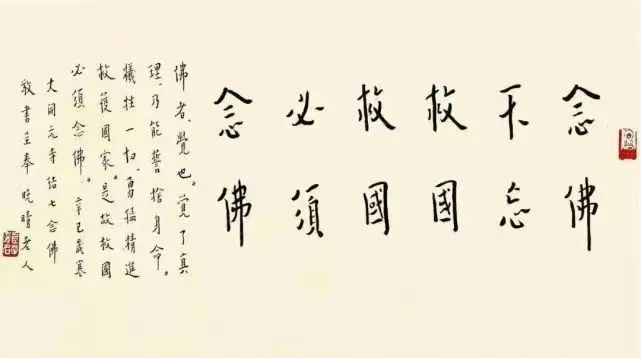 念佛
不忘
救國
救國
必須
念佛
佛者、覺也。覺了真
理、乃能誓捨身命。
犧牲一切、勇猛精進
救護國家。是故救國
必須念佛。 辛巳歲寒
大開元寺結七念佛
敬書呈奉 晚晴老人